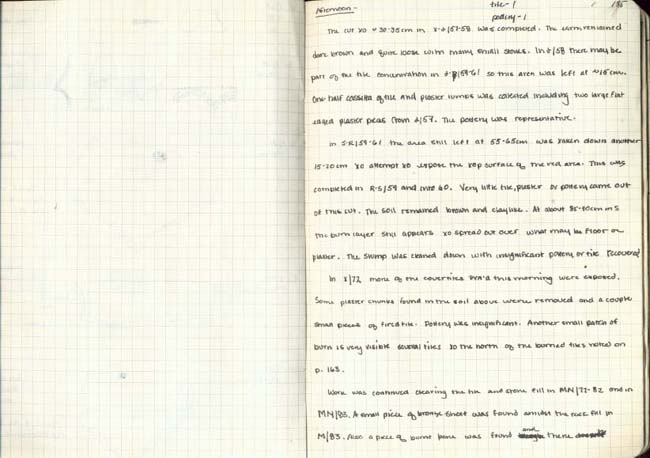 Afternoon -
tile - 1
pottery - 1
185
The cut to ~30-35cm in was completed. The earth remained
dark brown and quite loose with many small stones. In there may be
part of the tile concentration in so this area was left at ~15cm.
One half cassetta of tile and plaster lumps was collected including two large flat
edged plaster pieces from The pottery was representative.
In S-R/59-61 the area still left at 55-65cm was taken down another
15-20cm to attempt to expose the top surface of the red area. This was
completed in R-S/59 and into 60. Very little tile, plaster or pottery came out
of this cut. The soil remained brown and claylike. At about 55-60cm in S
the burn layer still appears to spread out over what may be floor or
plaster. The was cleaned down with insignificant pottery or tile recovered
In more of the covertiles this morning were exposed.
Some plaster chunks found in the soil above were removed and a couple
small pieces of fired tile. Pottery was insignificant. Another small patch of
burn is very visible several tiles to the north of the burned tiles noted on
p. 163.
Work was continued clearing the tile and stone fill in MN/77-82 and in
MN/83. A small piece of bronze sheet was found amidst the rock fill in
M/83. Also a piece of burnt bone was found and there